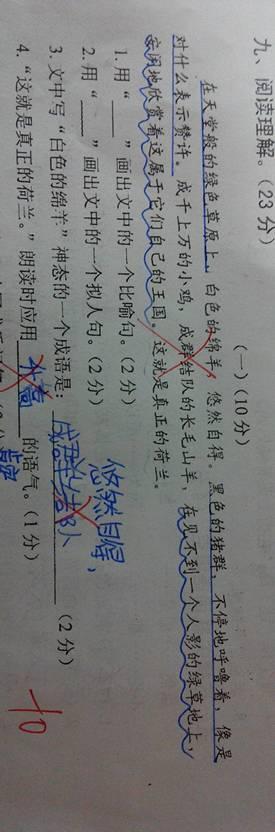 九、阅读理解。（23分）
（一）（10分）
在天堂般的绿色草原上，白色的绵羊，悠然自得。黑色的猪群，不停地呼噜着，像是
对什么表示赞许。成千上万的小鸡，成群结队的长毛山羊，在见不到一个人影的绿草地上，
安闲地欣赏着这属于它们自己的王国。这就是真正的荷兰。
1. 用“____”画出文中的一个比喻句。（2分）
2. 用“____”画出文中的一个拟人句。（2分）
悠然自得，
3. 文中写“白色的绵羊”神态的一个成语是：成群结队（2分）
4. “这就是真正的荷兰。”朗读时应用____的语气。（1分）
肯定